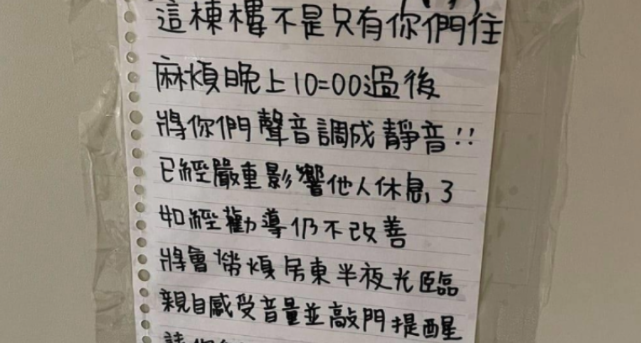 這棟樓不是只有你們住
麻煩晚上10=00過後
將你們聲音調成靜音!!
已經嚴重影響他人休息,3
如經勸導仍不改善
將會勞煩房東半夜光臨
親自感受音量並敲門提醒
請你